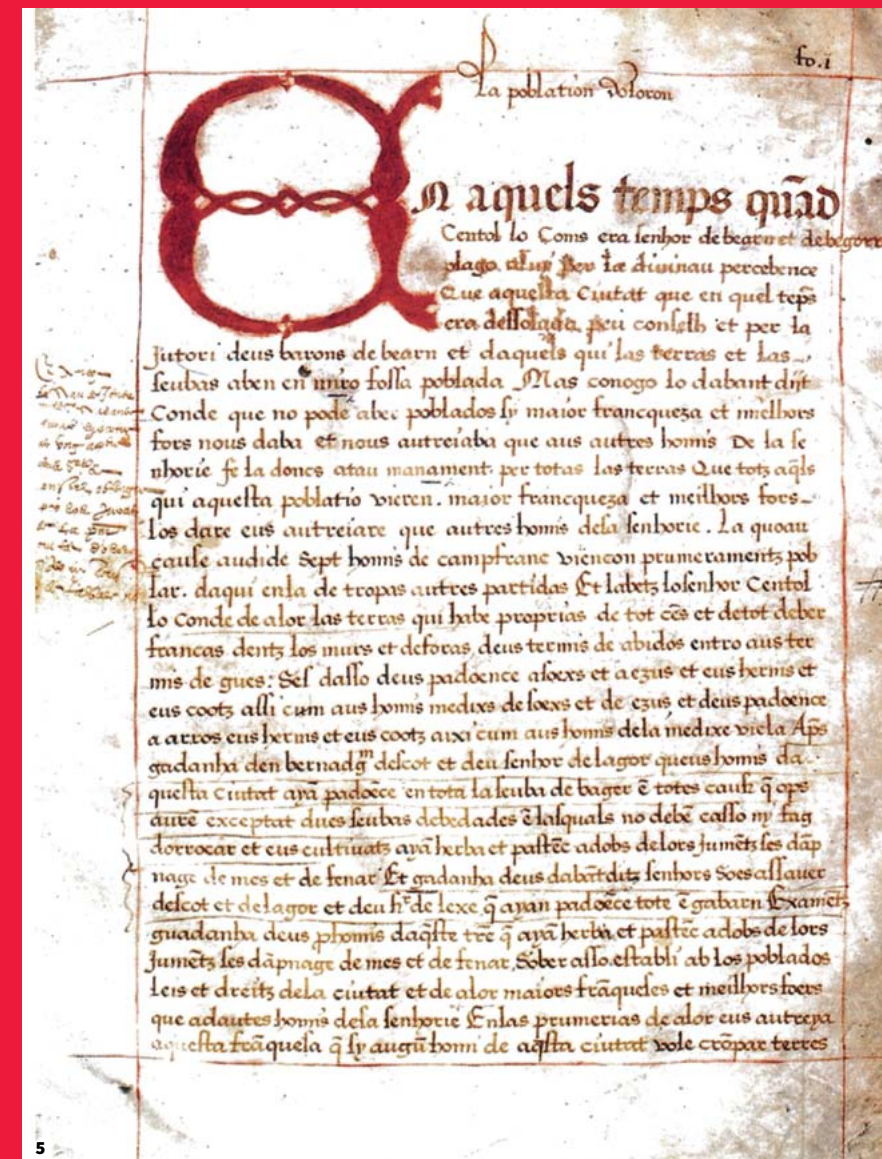 fo.i
La poblation doloron
En aquels temps quād
Centol lo Coms era senhor de bearn et de begorr
plago a luy per la divinau percebence
Que aquesta Ciutat que en quel teps
era dessolada peu conselh et per la
Jutori deus barons de bearn et daquels qui las terras et las
seubas aben en miro fossa poblada Mas conogo lo dabant dijt
Conde que no pode aber poblados sy maior francqueza et mielhors
fors nous daba et nous autreiaba que aus autres homis De la se
nhorie fe la doncs atau manament per totas las terras Que totz aq̄ls
qui aquesta poblatio vieren. maior francqueza et meilhors fors
los dare eus autreiare que autres homis dela senhorie. La quoau
cause audide Sept homis de campfranc viencon prumeramentz pob
lar. daqui enla de tropas autres partidas Et labetz lo senhor Centol
lo Conde de alor las terras qui habe proprias de tot cēs et de tot deber
francas dentz los murs et deforas, deus termis de abidos entro aus ter
mis de gues: Des dasso deus padoence a soexs et a ezus et eus herms et
eus cootz assi cum aus homis medixs de soexs et de ezus et deus padoence
a arros eus herms et eus cootz axi cum aus homis dela medixe viela Aps
gadanha den bernad descot et deu senhor de lagor queus homis da
questa Ciutat ayā padoēce en tota la seuba de bager ē totes causes q̄ ops
aurē exceptat dues seubas debedades ē lasquals no debē casso ny fag
dorrocar et eus cultivatz ayā herba et pastēc adobs de lors Jumētz ses dāp
nage de mes et de fenar Et gadanha deus dabāt ditz senhors Soes assauer
descot et de lagor et deu hr̄ de lexe q̄ ayan padoēce tote ē gabarn Examētz
guadanha deus phomis daq̄ste trē q̄ ayā herba et pastēc adobs de lors
Jumētz ses dāpnage de mes et de fenar, Sober asso establi ab los poblados
Leis et dreitz dela ciutat et de alor maiors frāqueses et meilhors foers
que adautes homis dela senhorie En las prumerias de alor eus autreya
aquesta frāquesa q̄ sy augū homi de aq̄sta ciutat vole crōpar terres
5